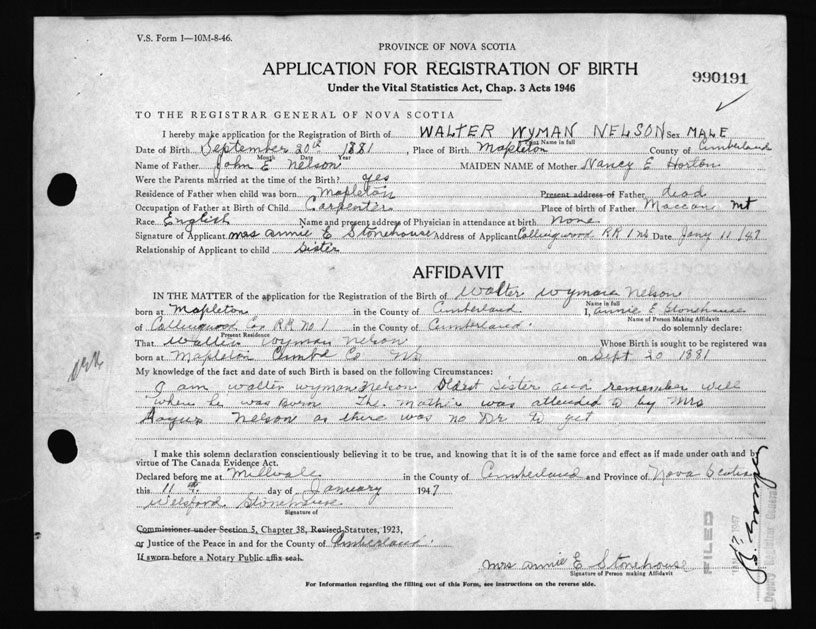 V.S. Form 1—10M-8-46.
PROVINCE OF NOVA SCOTIA
APPLICATION FOR REGISTRATION OF BIRTH
990191
Under the Vital Statistics Act, Chap. 3 Acts 1946
TO THE REGISTRAR GENERAL OF NOVA SCOTIA
I hereby make application for the Registration of Birth of WALTER WYMAN NELSON Sex MALE
Print Name in full
Date of Birth September 20th 1881, Place of Birth Mapleton County of Cumberland
Month Day Year
Name of Father John E Nelson MAIDEN NAME of Mother Nancy E Horton
Were the Parents married at the time of the Birth? yes
Residence of Father when child was born Mapleton Present address of Father dead
Occupation of Father at Birth of Child Carpenter Place of birth of Father Maccan Mt
Race English Name and present address of Physician in attendance at birth None
Signature of Applicant Mrs Annie E Stonehouse Address of Applicant Collingwood RR 1 NS Date Jany 11/47
Relationship of Applicant to child Sister
AFFIDAVIT
IN THE MATTER of the application for the Registration of the Birth of Walter Wyman Nelson
Name in full
born at Mapleton in the County of Cumberland I, Annie E Stonehouse
Name of Person Making Affidavit
of Collingwood Co RR No. 1 in the County of Cumberland. do solemnly declare:
Present Residence
That Walter Wyman Nelson Whose Birth is sought to be registered was
born at Mapleton Cumbd Co NS on Sept 20 1881
My knowledge of the fact and date of such Birth is based on the following Circumstances:
I am Walter Wyman Nelson Oldest Sister and remember well
when he was Born The Mother was attended to by Mrs
Nelson as there was no Dr to get
I make this solemn declaration conscientiously believing it to be true, and knowing that it is of the same force and effect as if made under oath and by
virtue of The Canada Evidence Act.
Declared before me at Millvale in the County of Cumberland and Province of Nova Scotia
this 11th day of January 1947
Welsford Stonehouse
Signature of
Commissioner under Section 5, Chapter 38, Revised Statutes, 1923,
or Justice of the Peace in and for the County of Cumberland.
If sworn before a Notary Public affix seal.
Mrs Annie E Stonehouse
Signature of Person making Affidavit
FILED
For information regarding the filling out of this Form, see instructions on the reverse side.